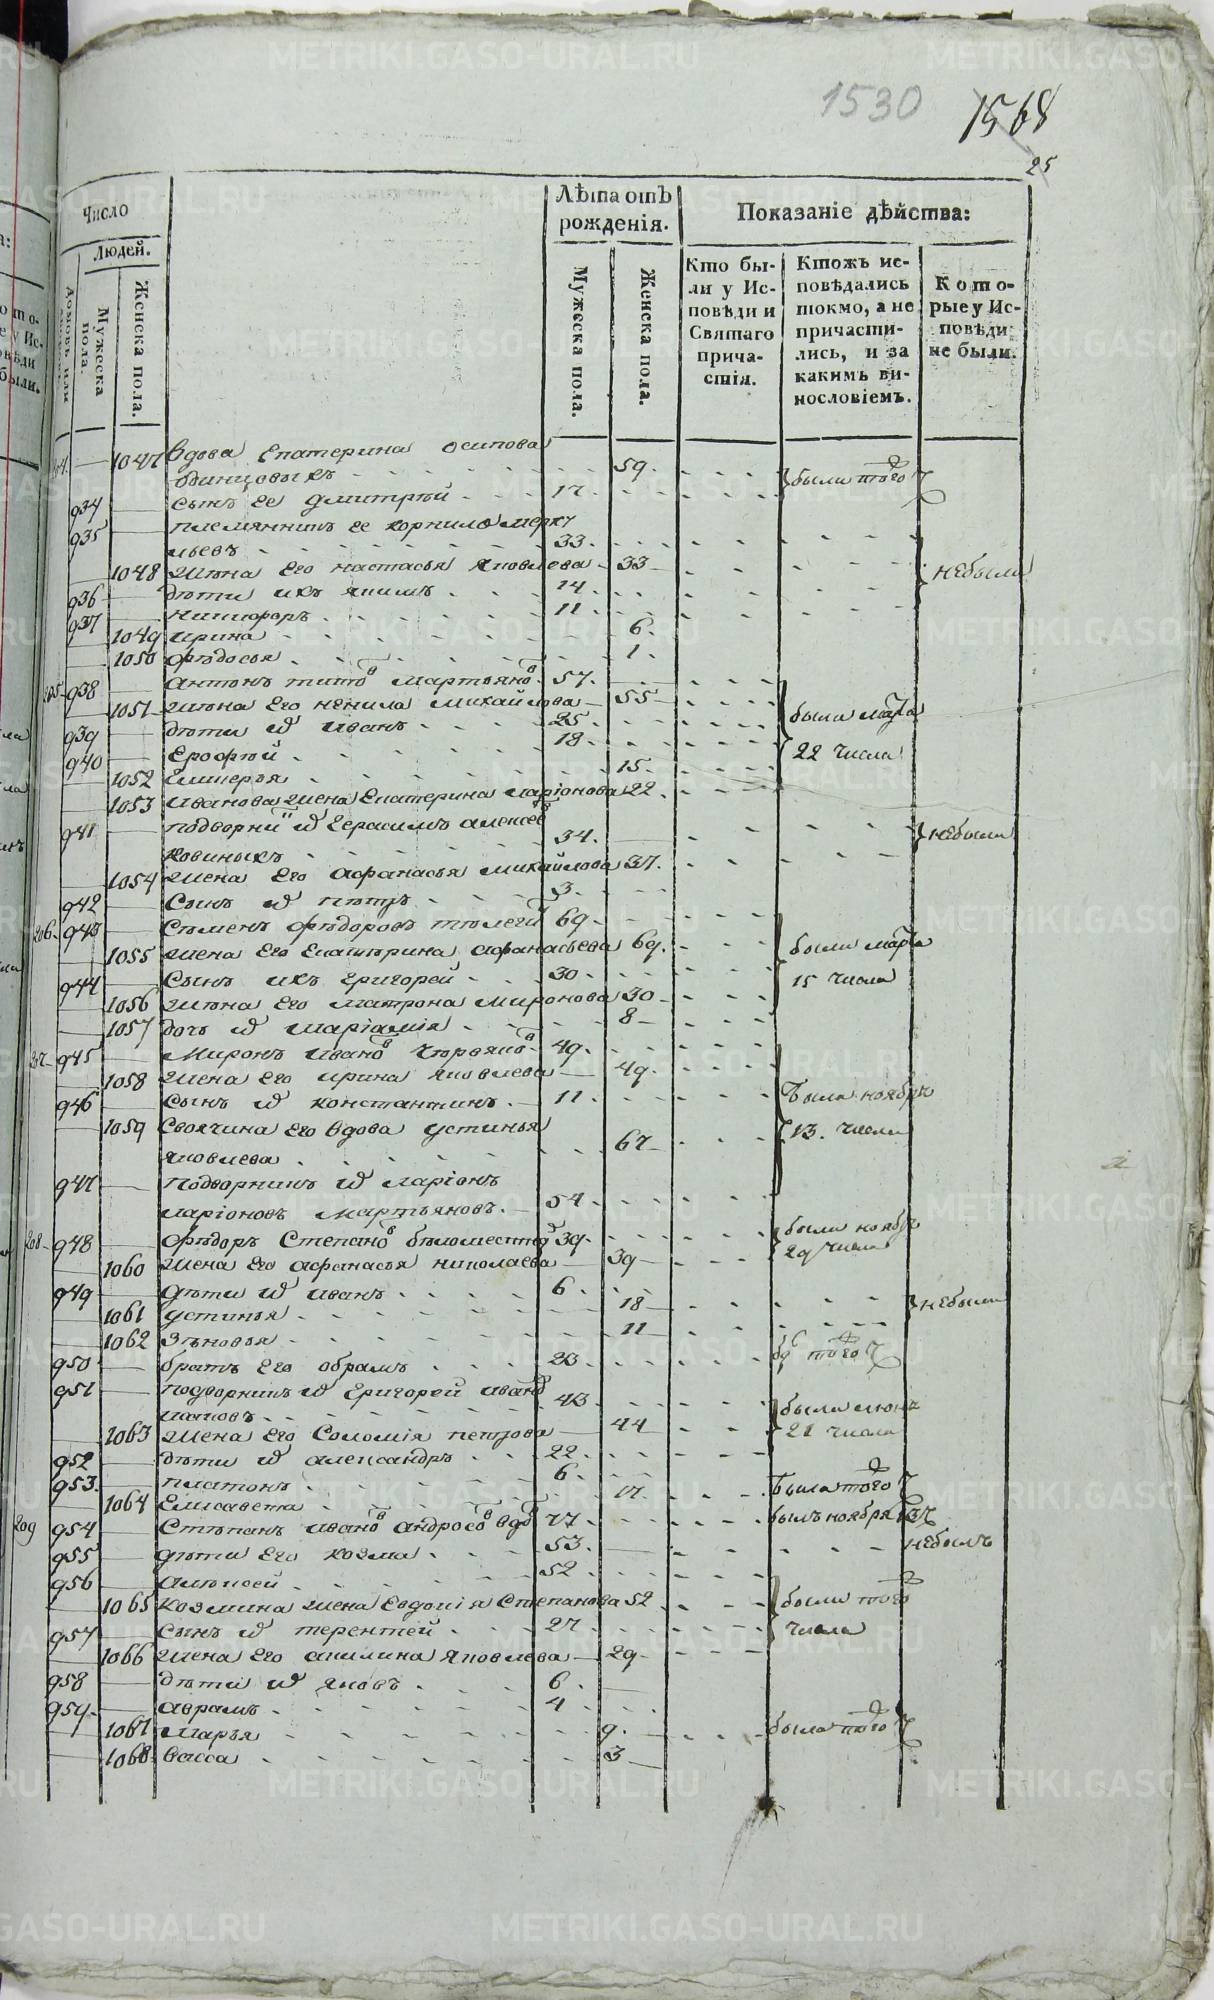 1530 1568
25
Число
Людей.
Мужеска пола.
Женска пола.
Лѣта отъ рожденія.
Мужеска пола.
Женска пола.
Показаніе дѣйства:
Кто бы-
ли у Ис-
повѣди и
Святаго
прича-
стія.
Ктожъ ис-
повѣдались
токмо, а не
причасти-
лись, и за
какимъ ви-
нословіемъ.
Кото-
рые у Ис-
повѣди
не были.
1047 вдова Екатерина осипова
одинцовыхъ 59. были того Ч
934 сынъ ее дмитрей 17.
935 племянникъ ее корнило мерк
льевъ 33.
1048 жена Его настасья яковлева 33 небыли
936 дети ихъ якимъ 14.
937 никифоръ 11
1049 ирина 6.
1050 фѣдосья 1
205 938 антонъ титов мартьянов 57.
1051 жена Его ненила михайлова 55 были марта
939 дети ихъ иванъ 25.
940 Ерофей 18 22 числа
1052 Гликерья 15.
1053 иванова жена Екатерина ларіонова 22.
941 подворник ихъ герасимъ алексеев
34. небыли
1054 жена Его афанасья михайлова 37.
942 сынъ ихъ петръ 3.
206. 943 Семенъ фѣдоровъ 69.
1055 жена Его Екатерина афанасьева 69. были марта
944 сынъ ихъ григорей 30 15 числа
1056 жена Его матрона миронова 30
1057 дочь ихъ маріамія 8
207 945 миронъ иванов 49.
1058 жена его ирина яковлева 49.
946 сынъ ихъ константинъ. 11 были ноября
1059 своячина его вдова устинья 13. числа
яковлева 67
947 подворникъ ихъ ларіонъ
ларіоновъ мартьяновъ. 54
208 948 фѣдоръ Степанов беломестнов 39. были ноября
1060 жена его афанасья николаева 39 29 числа
949 дети ихъ иванъ 6
1061 устинья 18 небыли
1062 зѣновья 11
950 братъ его обрамъ 23 того Ч
951 подворникъ ихъ григорей иванов
43 были июня
1063 жена его Соломія петрова 44 21 числа
952 дети ихъ александръ 22
953. платонъ 6.
1064 Елисавета 17 была того Ч
209 954 Степанъ иванов андросов вдов 77 былъ ноября 13
955 дети его козма 53. небылъ
956 алексей 52
1065 козмина жена Евдокія Степанова 52 были того
957 сынъ ихъ терентей 27. числа
1066 жена его акилина яковлева 29
958 дети ихъ яковъ 6
959 аврамъ 4
1067 марья 9. была того Ч
1068 васса 3